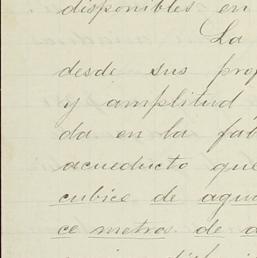 disponibles en
La
desde sus prop
y amplitud
da en la fab
acueducto que
cubico de agua
ce metros de a